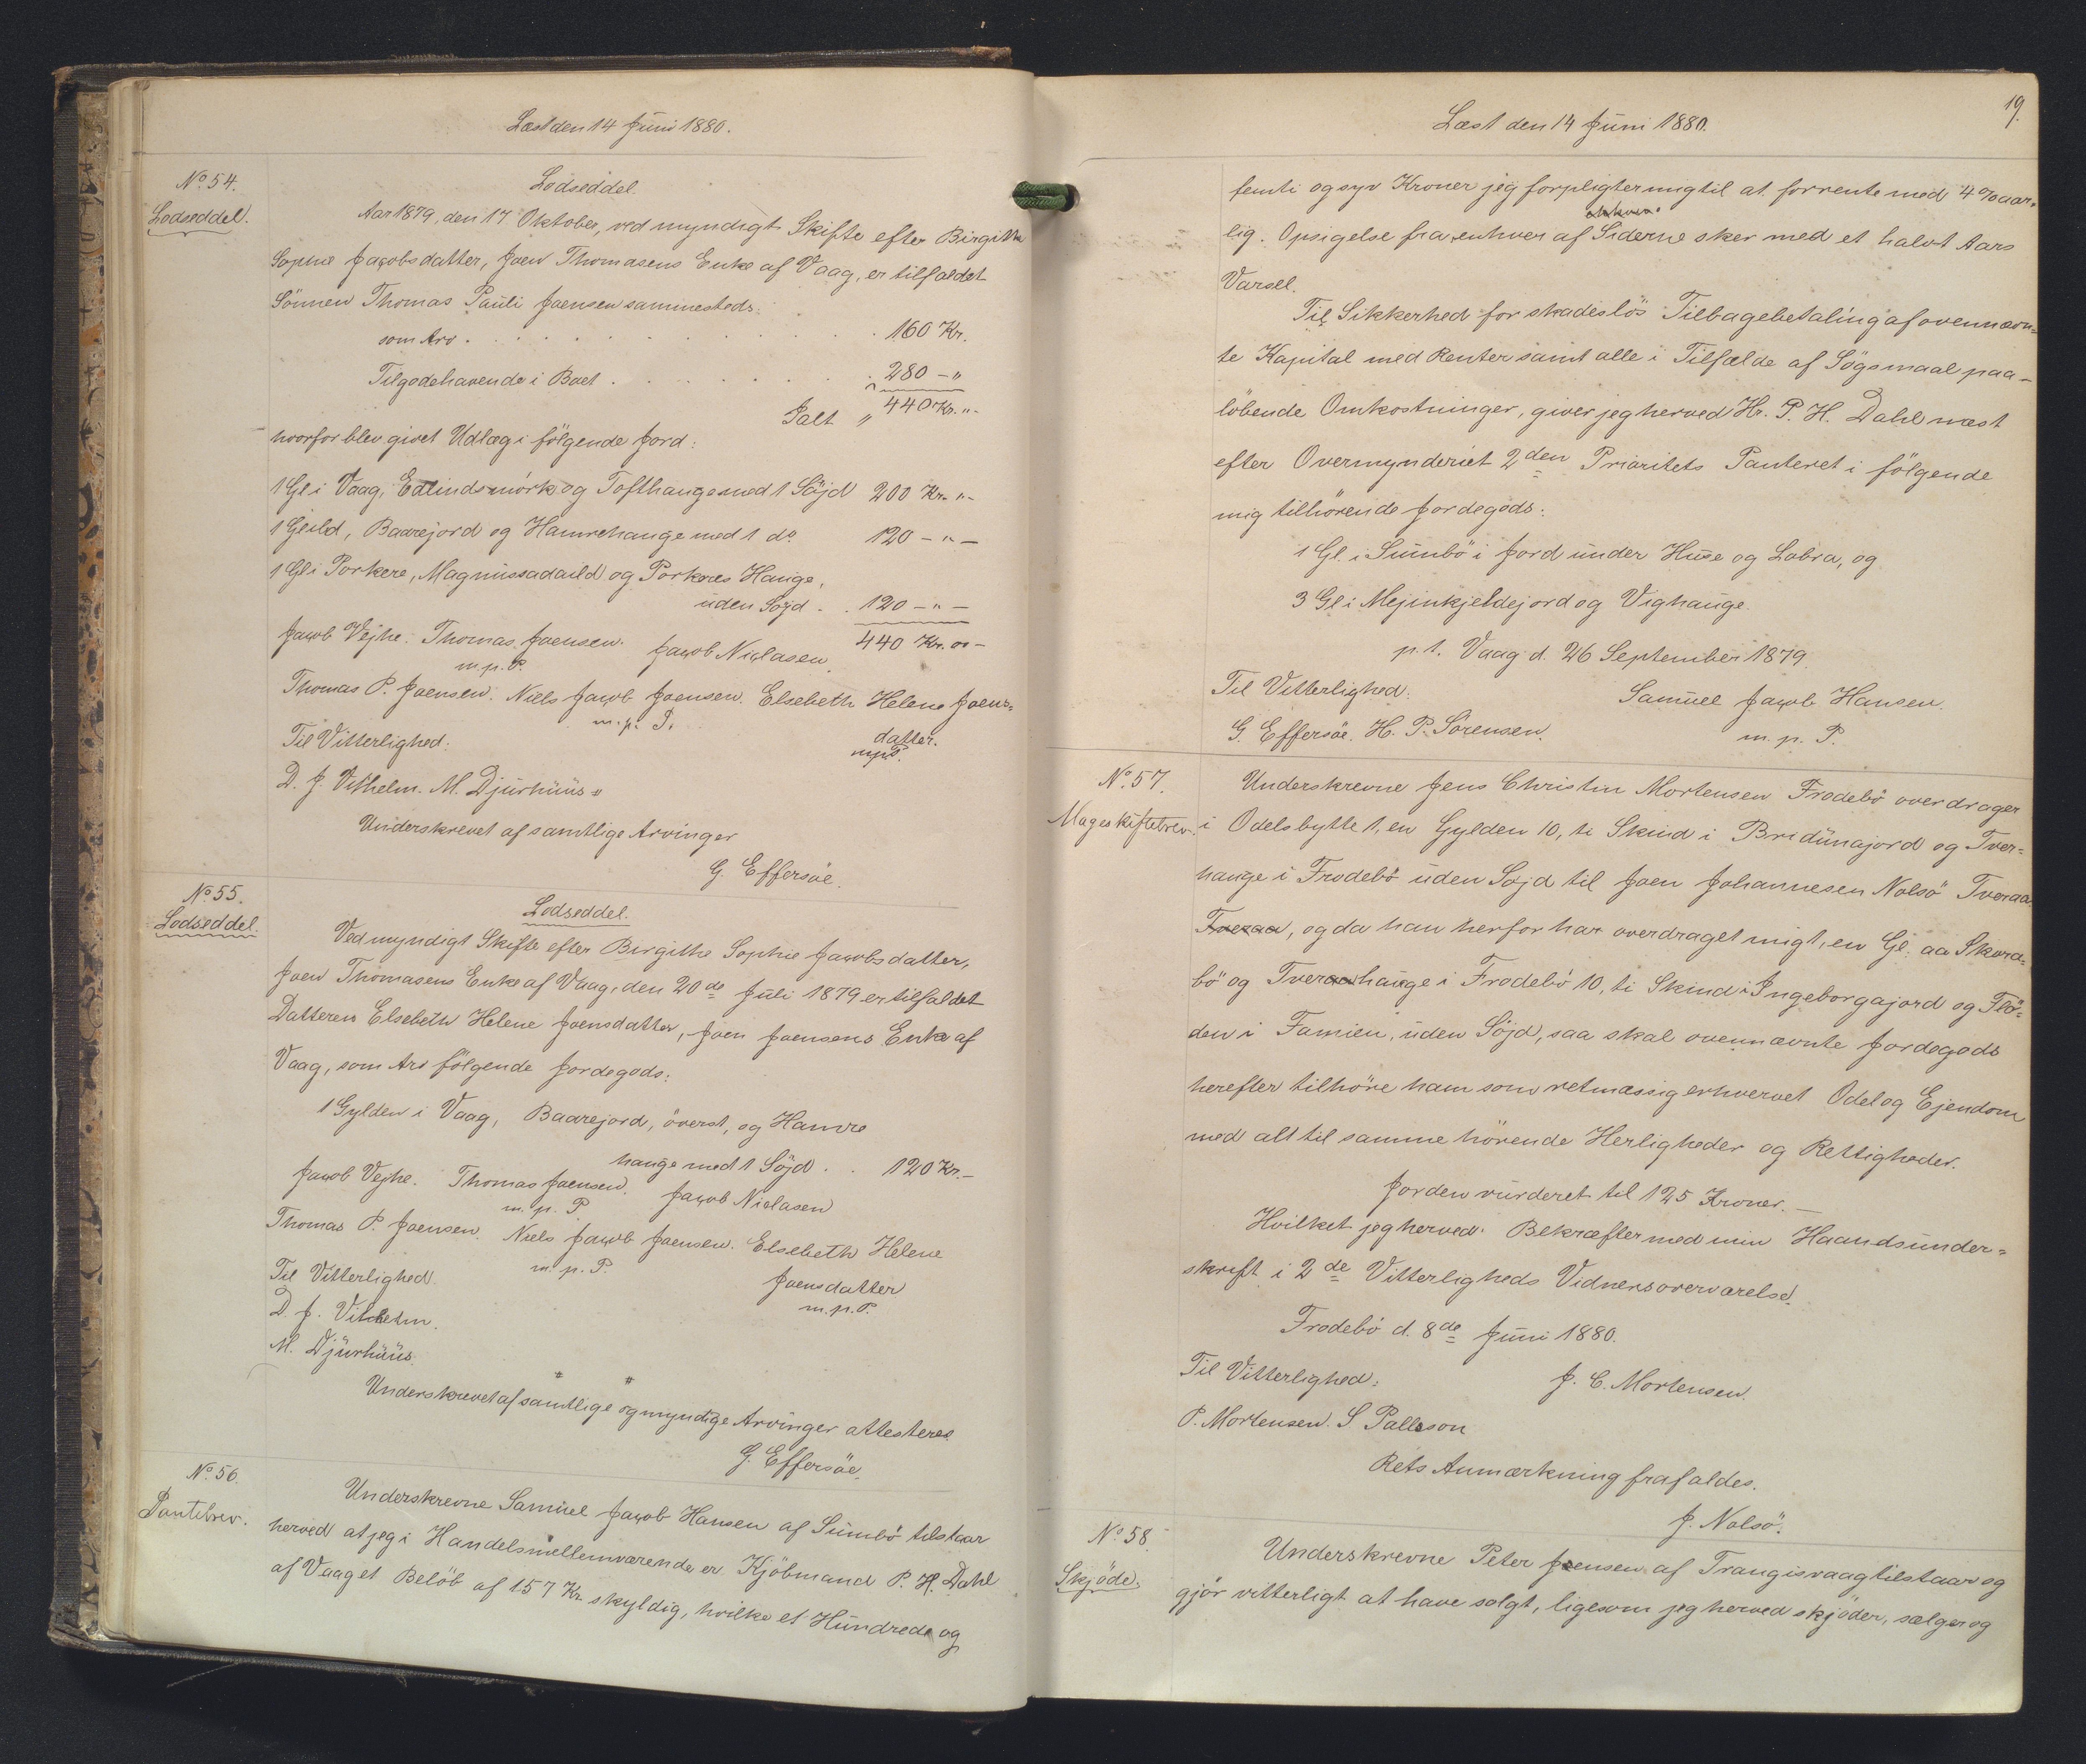 Læst den 14 Juni 1880.
No. 54.
Lodseddel.
Lodseddel.
Aar 1879, den 17 Oktober, ved myndigt Skifte efter Birgithe
Sophie Jacobsdatter, Joen Thomasens Enke af Vaag, er tilfaldet
Sönnen Thomas Pauli Joensen sammesteds:
som Arv . . . . . . . . . 160 Kr.
Tilgodehavende i Boet . . . . . . 280 – „
Ialt „ 440 Kr. „ -
hvorfor blev givet Udlæg i fölgende Jord:
1 Gl i Vaag, Edlindsmörk og Tofthauge med 1 Söjd 200 Kr. „ -
1 Gl ild, Baarejord og Hamrehauge med 1 do. 120 – „ –
1 Gl i Porkere, Magnussadaild og Porkeres Hauge,
uden Söjd . . 120 – „ –
440 Kr. „ –
Jacob Vejhe. Thomas Joensen. Jacob Niclasen
m. p. P.
Thomas P. Joensen. Niels Jacob Joensen. Elsebeth Helene Joens=
m. p. P. datter.
Til Vitterlighed: m.p.P.
D. J. Vilhelm. M. Djurhuus „
Underskrevet af samtlige Arvinger
G. Effersöe.
No. 55.
Lodseddel.
Lodseddel.
Ved myndigt Skifte efter Birgithe Sophie Jacobsdatter,
Joen Thomasens Enke af Vaag, den 20de Juli 1879 er tilfaldet
Datteren Elsebeth Helene Joensdatter, Joen Joensens Enke af
Vaag, som Arv fölgende Jordegods:
1 Gylden i Vaag, Baarejord, överst, og Hamre
hauge med 1 Söjd . . 120 Kr. –
Jacob Vejhe. Thomas Joensen. Jacob Niclasen
m. p. P
Thomas P. Joensen. Niels Jacob Joensen. Elsebeth Helene
m. p. P. Joensdatter
Til Vitterlighed. m. p. P.
D. J. Vilhelm.
M. Djurhuus.
Underskrevet af samtlige og myndige Arvinger attesteres
G. Effersöe.
No. 56.
Pantebrev.
Underskrevne Samuel Jacob Hansen af Sumbö tilstaar
herved at jeg i Handelsmellemværende er Kjöbmand P. H. Dahl
af Vaag et Belöb af 157 Kr. skyldig, hvilke et Hundrede og
Læst den 14 Juni 1880.
19.
femti og syv Kroner jeg forpligter mig til at forrente med 4 % aar=
lig. Opsigelse fra enhver af Siderne sker med et halvt Aars
Varsel.
Til Sikkerhed for skadeslös Tilbagebetaling af ovennævn=
te Kapital med Renter samt alle i Tilfælde af Sögsmaal paa-
löbende Omkostninger, giver jeg herved Hr. P. H. Dahl næst
efter Overmynderiet 2den Prioritets Panteret i fölgende
mig tilhörende Jordegods:
1 Gl. i Sumbö i Jord under Huse og Lobra, og
3 Gl i Mejinkjeldejord og Vighauge.
p. t. Vaag d. 26 September 1879.
Til Vitterlighed: Samuel Jacob Hansen.
G. Effersöe. H. P. Sörensen. m. p. P.
No. 57.
Mageskiftebrev.
Underskrevne Jens Christin Mortensen Frodebö overdrager
i Odelsbytte 1, en Gylden 10, ti Skind i Bridunajord og Tver=
hauge i Frodebö uden Söjd til Joen Johannesen Nolsö Tveraa
Tveraa, og da han herfor har overdraget mig 1, en Gl. aa Skora=
bö og Tveraahauge i Frodebö 10, ti Skind i Ingeborgajord og Flö=
den i Famien, uden Söjd, saa skal ovennævnte Jordegods
herefter tilhöre ham som retmæssig erhvervet Odel og Ejendom
med alt til samme hörende Herligheder og Rettigheder.
Jorden vurderet til 125 Kroner. –
Hvilket jeg herved Bekræfter med min Haandsunder=
skrift i 2de Vitterligheds Vidners overværelse.
Frodebö d. 8de Juni 1880.
Til Vitterlighed: J. C. Mortensen.
P. Mortensen. S Pallsson
Rets Anmærkning frafaldes.
J. Nolsö.
No. 58.
Skjöde.
Underskrevne Peter Joensen af Trangisvaag tilstaar og
gjör vitterligt at have solgt, ligesom jeg herved skjöder, sælger og